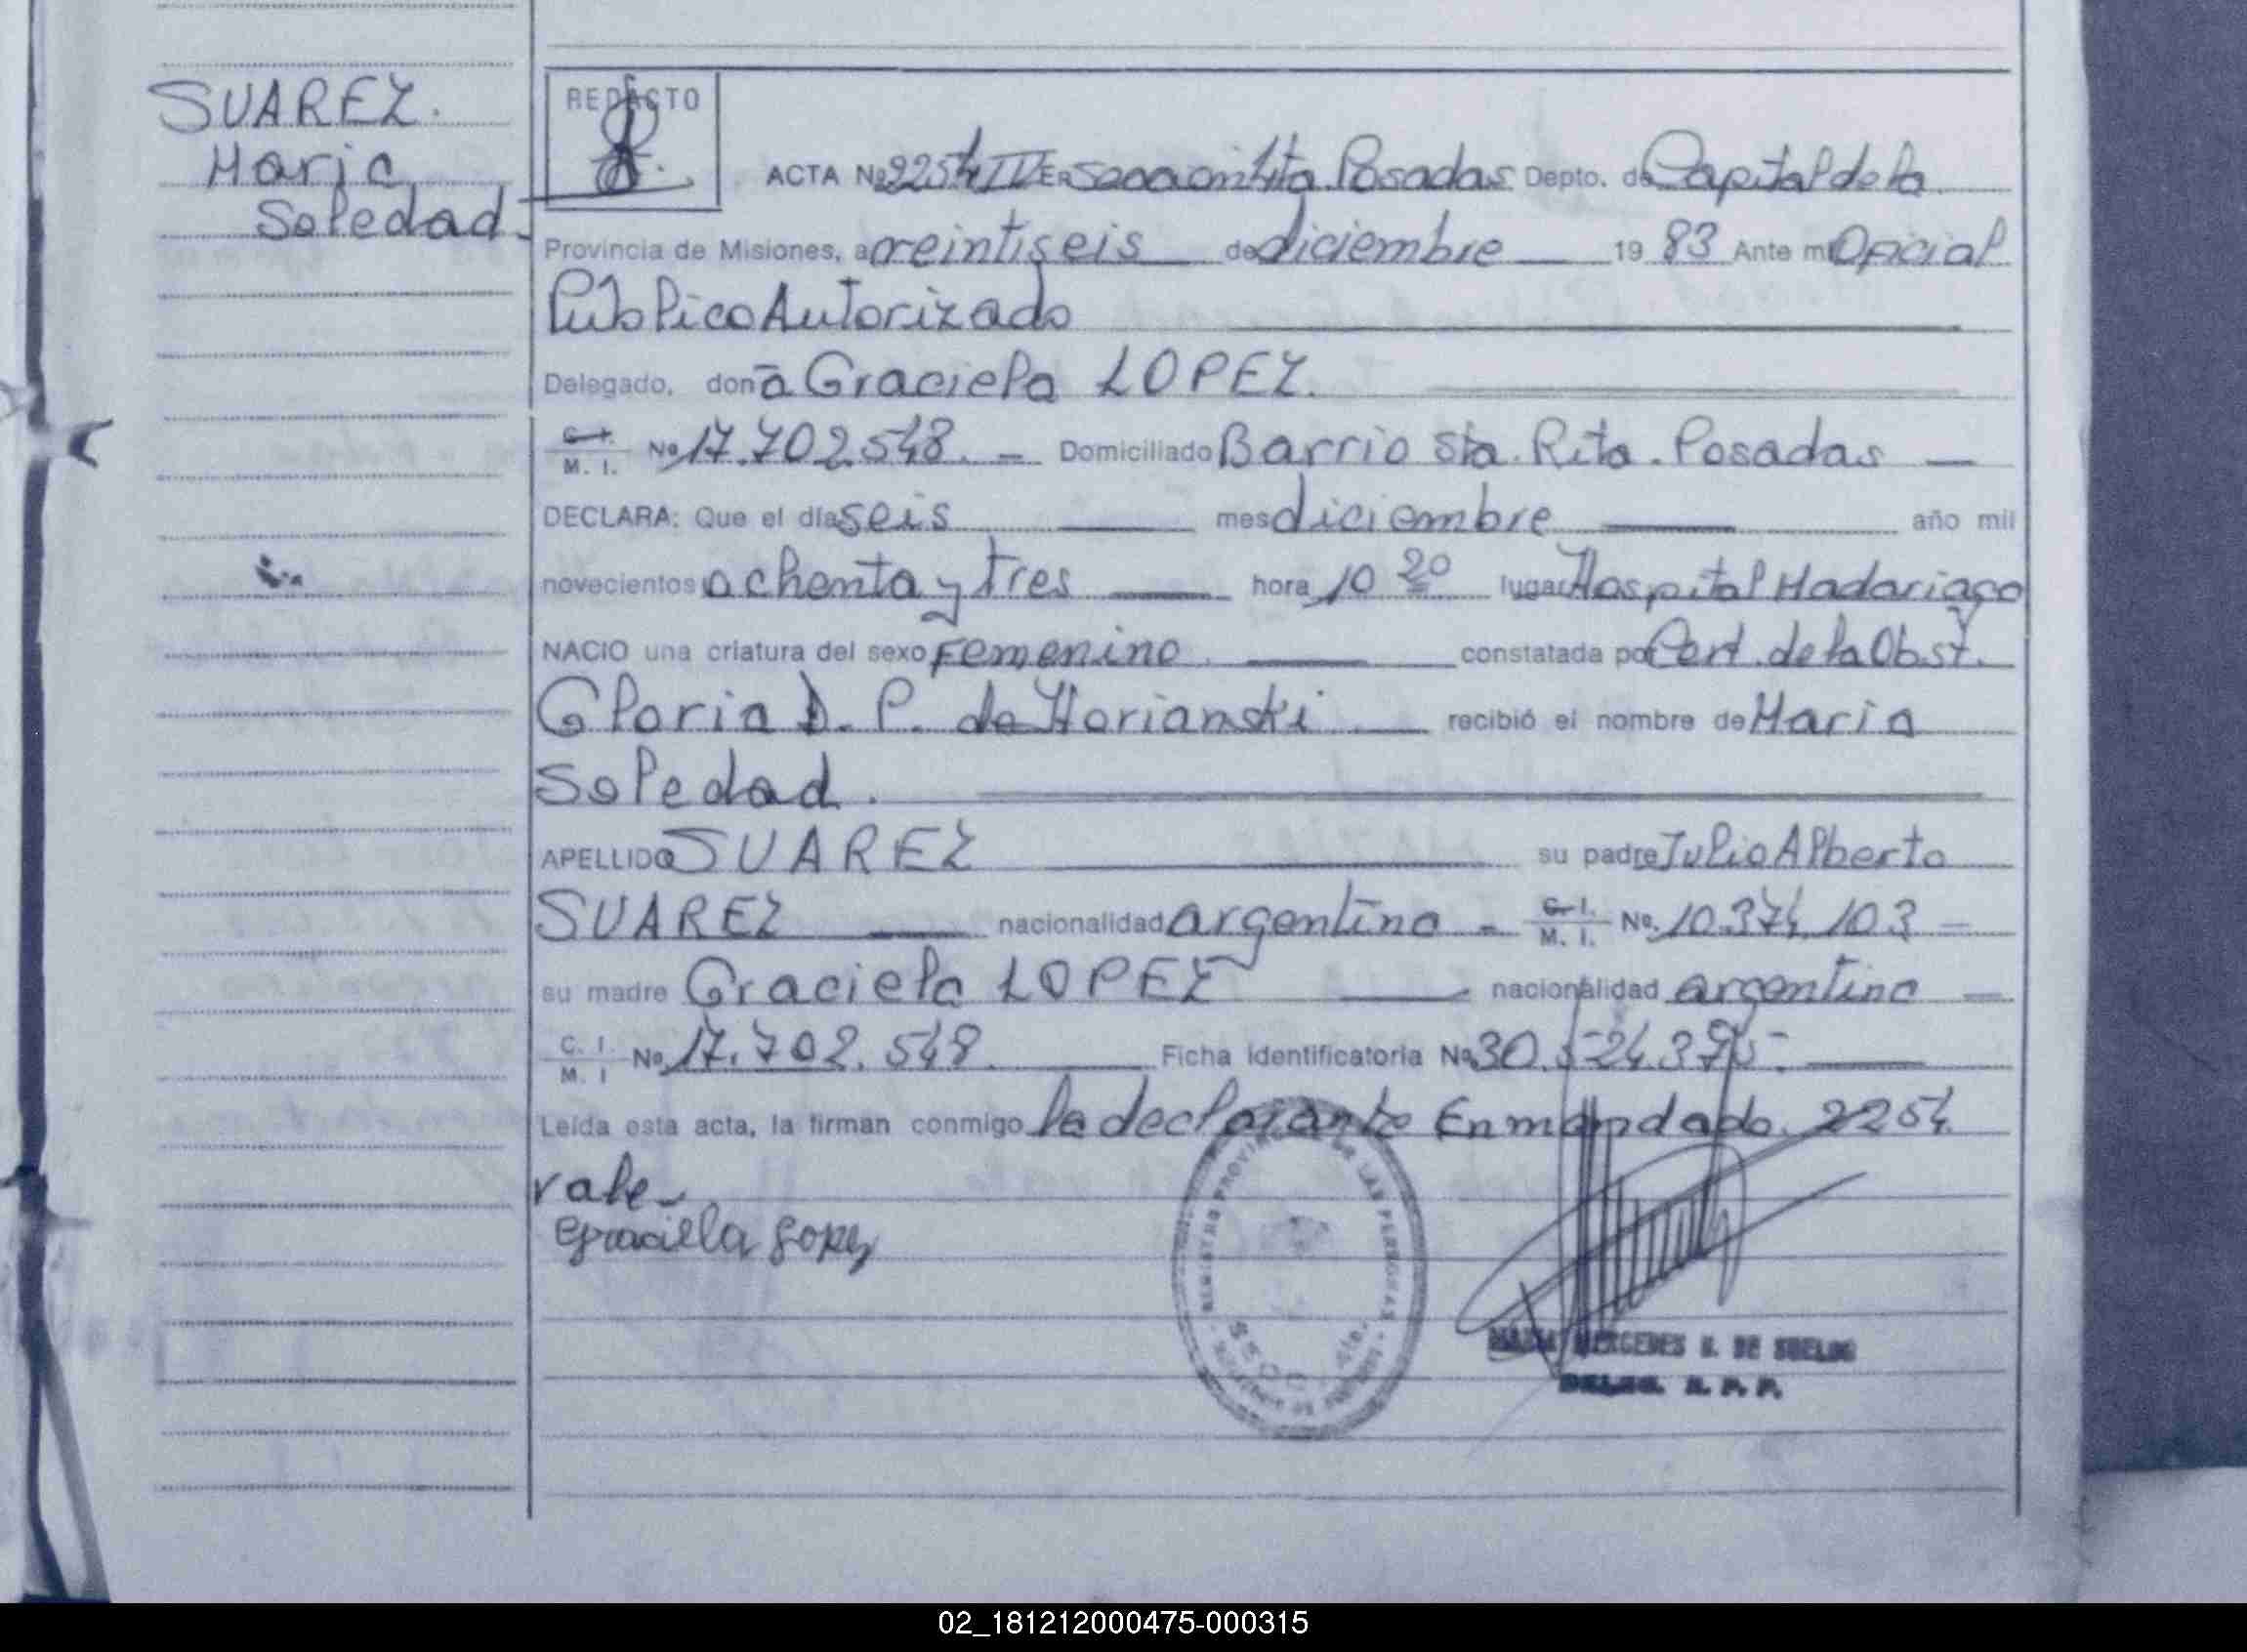 SUAREZ.
Maria
Soledad.
REDACTO
ACTA Nº 2254 IV EN Seccion 4ta. Posadas Depto. de Capital de la
Provincia de Misiones, a veintiseis de diciembre 19 83 Ante mi Oficial
Público Autorizado
Delegado, don a Graciela LOPEZ.
C. I. M. I. Nº 17.702.548. - Domiciliado Barrio Sta. Rita. Posadas —
DECLARA: Que el día seis mes diciembre año mil
novecientos ochenta y tres hora 10 20 lugar Hospital Madariaga
NACIO una criatura del sexo Femenino constatada por Cert. de la Obst.
Gloria D. P. de recibió el nombre de Maria
Soledad.
APELLIDO SUAREZ su padre Julio Alberto
SUAREZ nacionalidad argentino - C. I. M. I. Nº 10.374.103 -
su madre Graciela LOPEZ nacionalidad argentina —
C. I. M. I Nº 17.702.548. Ficha Identificatoria Nº 30.524.375-
Leída esta acta, la firman conmigo la declarante Enmendado. 2254.
vale-
Graciela Lopez
MARIA MERCEDES DE
DELEG. R. P. P.
02_181212000475-000315